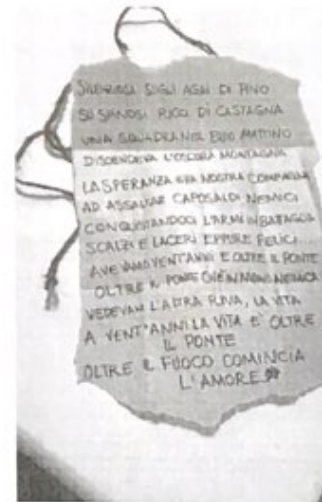 SILENZIOSI SUGLI AGHI DI PINO
SU SPINOSI RICCI DI CASTAGNA
UNA SQUADRA NEL BUIO MATTINO
DISCENDEVA L'OSCURA MONTAGNA
LA SPERANZA ERA NOSTRA COMPAGNA
AD ASSALTAR CAPOSALDI NEMICI
CONQUISTANDOCI L'ARMI IN BATTAGLIA
SCALZI E LACERI EPPURE FELICI...
AVEVAMO VENT'ANNI E OLTRE IL PONTE
OLTRE IL PONTE CH'È IN MANO NEMICA
VEDEVAM L'ALTRA RIVA, LA VITA
A VENT'ANNI LA VITA E' OLTRE
IL PONTE
OLTRE IL FUOCO COMINCIA
L'AMORE